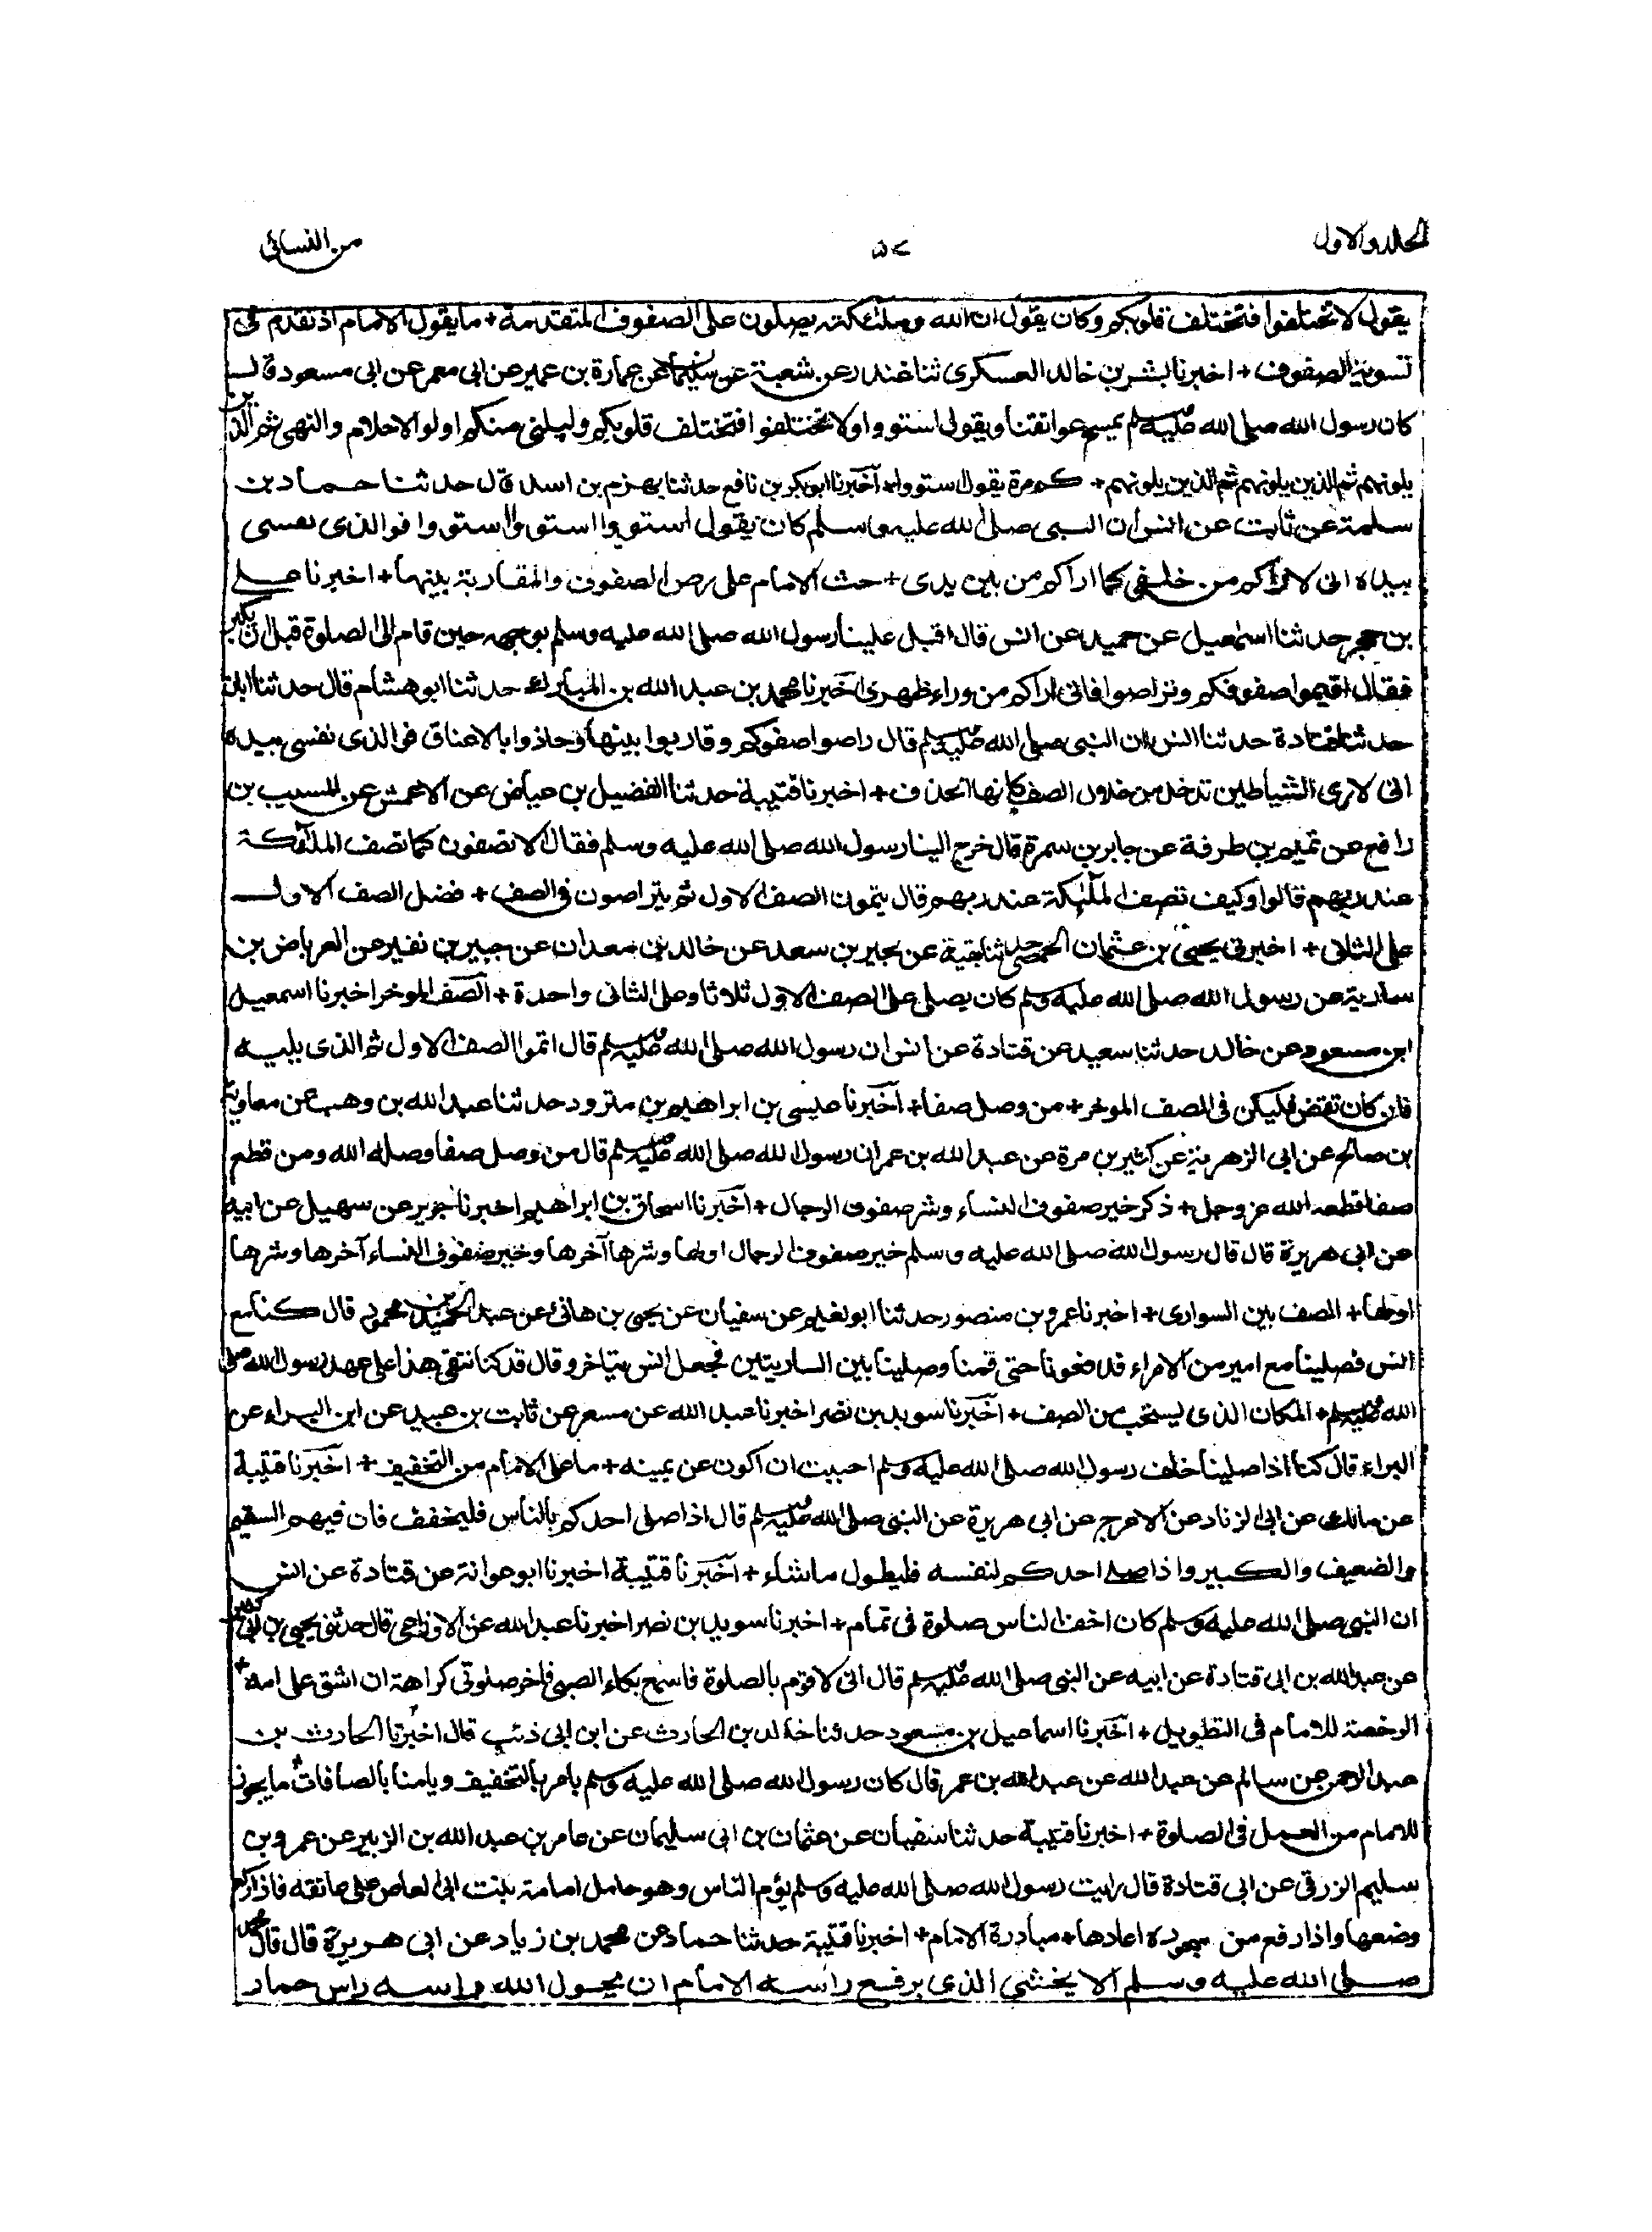 المجلد الاول
٥٧
من النسائی
يقول لا تختلفوا فتختلف قلوبكم وكان يقول ان الله وملئكته يصلون على الصفوف المتقدمة + ما يقول الامام اذ تقدم فى
تسوية الصفوف + اخبرنا بشر بن خالد العسكرى ثنا غندر عن شعبة عن سليمان عن عمارة بن عمير عن ابى معمر عن ابى مسعود قال
كان رسول الله صلى الله عليه وسلم يمسح عواتقنا ويقول استووا ولا تختلفوا فتختلف قلوبكم وليلنى منكم اولوا الاحلام والنهى ثم الذين
يلونهم ثم الذين يلونهم ثم الذين يلونهم + كم مرة يقول استووا + اخبرنا ابو بكر بن نافع حدثنا بهز بن اسد قال حدثنا حماد بن
سلمة عن ثابت عن انس ان النبى صلى الله عليه وسلم كان يقول استووا استووا استووا فوالذى نفسى
بيده انى لاراكم من خلفى كما اراكم من بين يدى + حث الامام على رص الصفوف والمقاربة بينها + اخبرنا على
بن حجر حدثنا اسمعيل عن حميد عن انس قال اقبل علينا رسول الله صلى الله عليه وسلم بوجهه حين قام الى الصلوة قبل ان يكبر
فقال اقيموا صفوفكم وتراصوا فانى اراكم من وراء ظهرى اخبرنا محمد بن عبد الله بن المبارك حدثنا ابو هشام قال حدثنا ابان
حدثنا قتادة حدثنا انس ان النبى صلى الله عليه وسلم قال راصوا صفوفكم وقاربوا بينها وحاذوا بالاعناق فوالذى نفسى بيده
انى لارى الشياطين تدخل من خلال الصف كانها الحذف + اخبرنا قتيبة حدثنا الفضيل بن عياض عن الاعمش عن المسيب بن
رافع عن تميم بن طرفة عن جابر بن سمرة قال خرج الينا رسول الله صلى الله عليه وسلم فقال الا تصفون كما تصف الملئكة
عند ربهم قالوا وكيف تصف الملئكة عند ربهم قال يتمون الصف الاول ثم يتراصون فى الصف + فضل الصف الاول
على الثانى + اخبرنى يحيى بن عثمان الحمصى حدثنا بقية عن بجير بن سعد عن خالد بن معدان عن جبير بن نفير عن العرباض بن
سارية عن رسول الله صلى الله عليه وسلم كان يصلى على الصف الاول ثلاثا وعلى الثانى واحدة + الصف الموخر اخبرنا اسمعيل
ابن مسعود عن خالد حدثنا سعيد عن قتادة عن انس ان رسول الله صلى الله عليه وسلم قال اتموا الصف الاول ثم الذى يليه
فان كان نقص فليكن فى الصف الموخر + من وصل صفا + اخبرنا عيسى بن ابراهيم بن مثرود حدثنا عبد الله بن وهب عن معاوية
بن صالح عن ابى الزهرية عن كثير بن مرة عن عبد الله بن عمر ان رسول الله صلى الله عليه وسلم قال من وصل صفا وصله الله ومن قطع
صفا قطعه الله عز وجل + ذكر خير صفوف النساء وشر صفوف الرجال + اخبرنا اسحاق بن ابراهيم اخبرنا جرير عن سهيل عن ابيه
عن ابى هريرة قال قال رسول الله صلى الله عليه وسلم خير صفوف الرجال اولها وشرها آخرها وخير صفوف النساء آخرها وشرها
اولها + الصف بين السوارى + اخبرنا عمرو بن منصور حدثنا ابو نعيم عن سفيان عن يحيى بن هانئ عن عبد الحميد بن محمود قال كنا مع
انس فصلينا مع امير من الامراء فدفعونا حتى قمنا وصلينا بين الساريتين فجعل انس يتاخر وقال قد كنا نتقى هذا على عهد رسول الله صلى
الله عليه وسلم + المكان الذى يستحب من الصف + اخبرنا سويد بن نصر اخبرنا عبد الله عن مسعر عن ثابت بن عبيد عن ابن البراء عن
البراء قال كنا اذا صلينا خلف رسول الله صلى الله عليه وسلم احببت ان اكون عن يمينه + ما على الامام من التخفيف + اخبرنا قتيبة
عن مالك عن ابى الزناد عن الاعرج عن ابى هريرة عن النبى صلى الله عليه وسلم قال اذا صلى احدكم بالناس فليخفف فان فيهم السقيم
والضعيف والكبير واذا صلى احدكم لنفسه فليطول ما شاء + اخبرنا قتيبة اخبرنا ابو عوانة عن قتادة عن انس
ان النبى صلى الله عليه وسلم كان اخف الناس صلوة فى تمام + اخبرنا سويد بن نصر اخبرنا عبد الله عن الاوزاعى قال حدثنى يحيى بن ابى كثير
عن عبد الله بن ابى قتادة عن ابيه عن النبى صلى الله عليه وسلم قال انى لاقوم بالصلوة فاسمع بكاء الصبى فاوخر صلوتى كراهة ان اشق على امه +
الرخصة للامام فى التطويل + اخبرنا اسماعيل بن مسعود حدثنا خالد بن الحارث عن ابن ابى ذئب قال اخبرنا الحارث بن
عبد الرحمن عن سالم عن عبد الله عن عبد الله بن عمر قال كان رسول الله صلى الله عليه وسلم يامر بالتخفيف ويامنا بالصافات + ما يجوز
للامام من العمل فى الصلوة + اخبرنا قتيبة حدثنا سفيان عن عثمان بن ابى سليمان عن عامر بن عبد الله بن الزبير عن عمرو بن
سليم الزرقى عن ابى قتادة قال رايت رسول الله صلى الله عليه وسلم يؤم الناس وهو حامل امامة بنت ابى العاص على عاتقه فاذا ركع
وضعها واذا رفع من سجوده اعادها + مبادرة الامام + اخبرنا قتيبة حدثنا حماد عن محمد بن زياد عن ابى هريرة قال قال محمد
صلى الله عليه وسلم الا يخشى الذى يرفع راسه الامام ان يحول الله راسه راس حمار